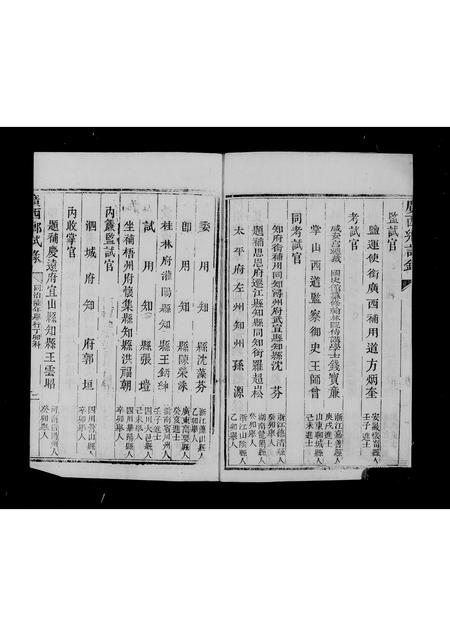 廣西鄉試錄
監試官
鹽運使銜廣西補用道方炳奎
壬子進士
考試官
錢寶廉
浙江嘉善縣人
庚戌進士
掌山西道監察御史王師曾
山東聊城縣人
己未進士
同考試官
知府銜補用同知潯州府武宣縣知縣沈芬
浙江德清縣人
癸卯舉人
題補思恩府遷江縣知縣同知銜羅超崧
湖南龍陽縣人
癸卯舉人
太平府左州知州孫源
浙江山陰縣人
乙卯舉人
委用知縣沈藻芬
浙江蕭山縣人
乙卯舉人
即用知縣陳榮
廣東高要縣人
癸亥進士
桂林府灌陽縣知縣王
壬子進士
試用知縣張塏
四川大邑縣人
己未舉人
坐補梧州府懷集縣知縣洪福朝
四川華陽縣人
辛卯舉人
內簾監試官
泗城府知府郭垣
四川營山縣人
辛卯舉人
內收掌官
題補慶遠府宜山縣知縣王雲
癸卯舉人
廣西鄉試錄
丁卯科